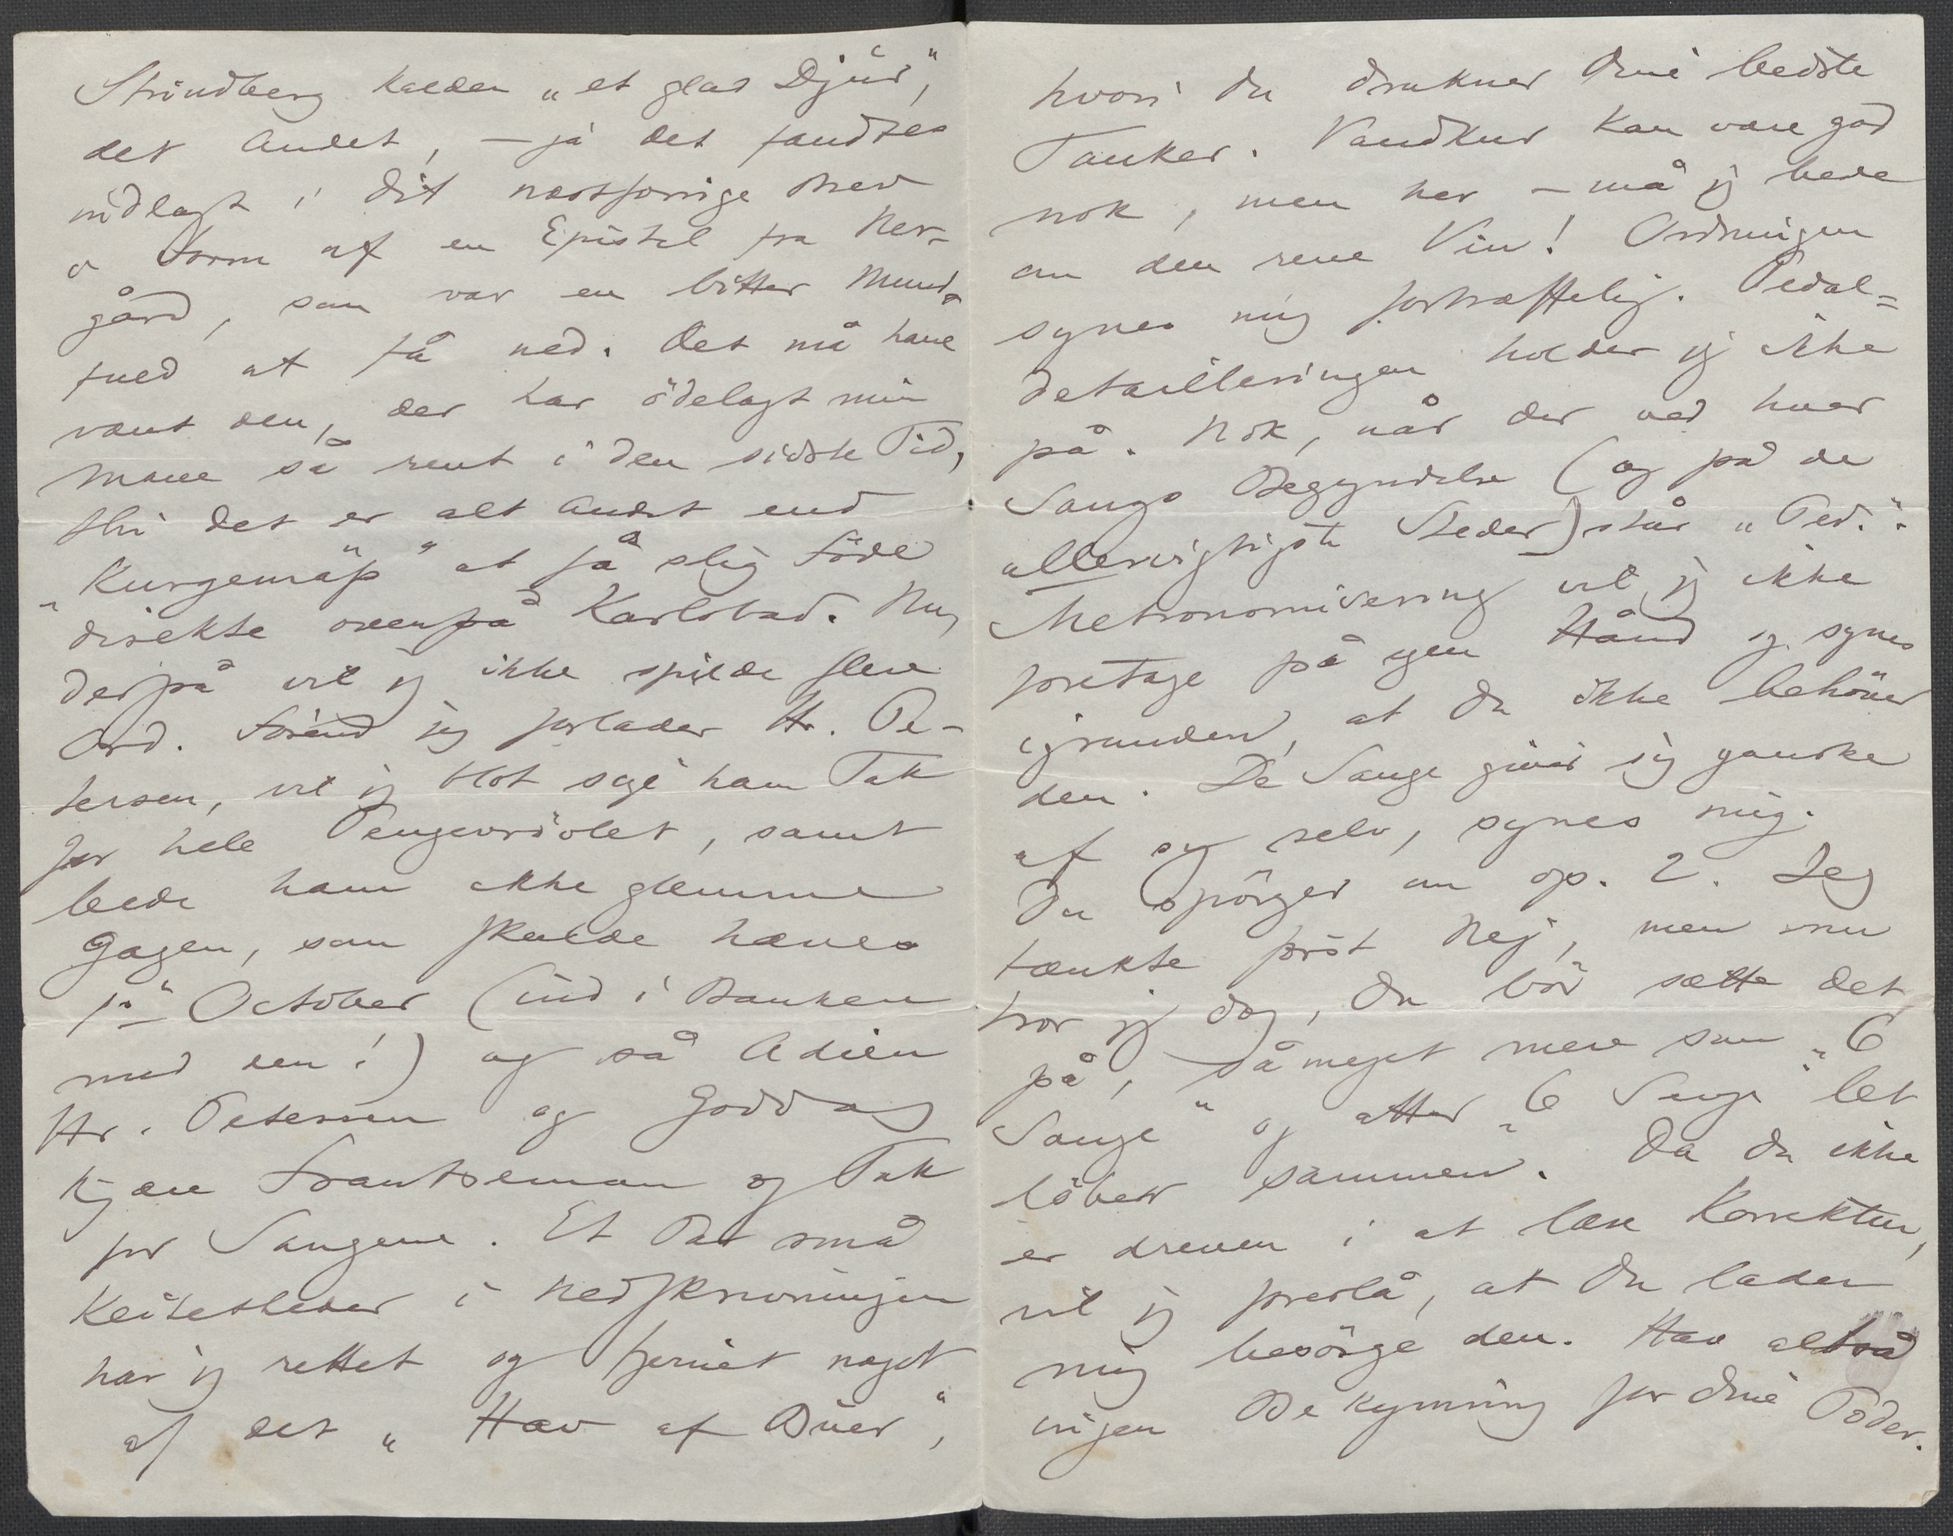 Strindberg kalder „et glad Djur",
det Andet, – ja det fandtes
indlagt i dit næstforrige Brev
i Form af en Epistel fra Her-
gård, som var en bitter Mund-
fuld at få ned. Det må have
været den, der har ödelagt min
Mave så rent i den sidste Tid,
thi det er alt Andet end
"Kurgemäß" at få slig Föde
direkte ovenpå Karlsbad. Nu,
derpå vil jeg ikke spilde flere
Ord. Förend jeg forlader Hr. Pe-
tersen, vil jeg blot sige ham Tak
for hele Pengevrövlet, samt
bede ham ikke glemme
Gagen, som skulde hæves
1ste October (ind i Banken
med den!) og så Adieu
Hr. Petersen og Goddag
kjære Frantseman og Tak
for Sangene. Et Par små
Keitetheder i Nedskrivningen
har jeg rettet og fjernet noget
af det „Hav af Buer",
hvori du drukner dine bedste
Tanker. Vandkur kan være god
nok, men her – må jeg bede
om den rene Vin! Ordningen
synes mig fortræffelig. Pedal-
detailleringen holder jeg ikke
på. Nok, når der ved hver
Sangs Begyndelse (og på de
allervigtigste Steder) står „Ped.".
Metronomisering vil jeg ikke
foretage på egen Hånd og synes
igrunden, at du ikke behöver
den. De Sange giver sig ganske
af sig selv, synes mig.
Du spörger om op. 2. Jeg
tænkte först Nej, men nu
tror jeg dog, du bör sætte det
på, såmeget mere som „6
Sange" og atter „6 Sange" let
löber sammen. Da du ikke
er dreven i at læse Korrektur,
vil jeg foreslå, at du lader
mig besörge den. Hav altså
ingen Bekymring for dine Poder.